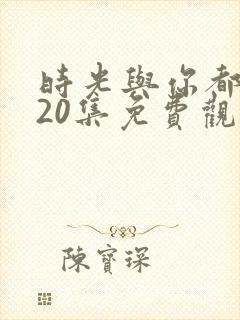 時光與你都
20集免費觀
陳寶琛